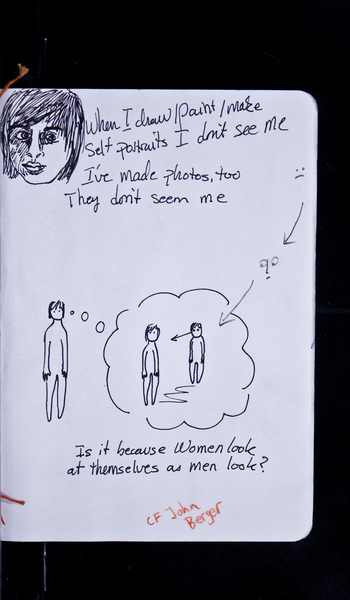 When I draw/paint/make
Self portraits I don't see me
I've made photos, too
They don't seem me
Is it because Women look
at themselves as men look?
CF John
Berger